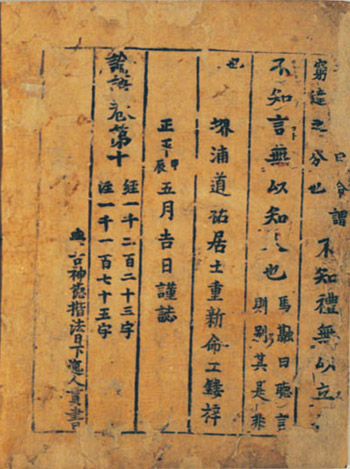 曰命謂
窮達之分也
不知禮無以立
不知言無以知人也
馬融曰聽言
則別其是非
也
堺浦道祐居士重新命工鏤梓
正平甲辰五月吉日謹誌
論語卷第十
經一千二百二十三字
注一千一百七十五字
古神德楷法日下逸人貫書